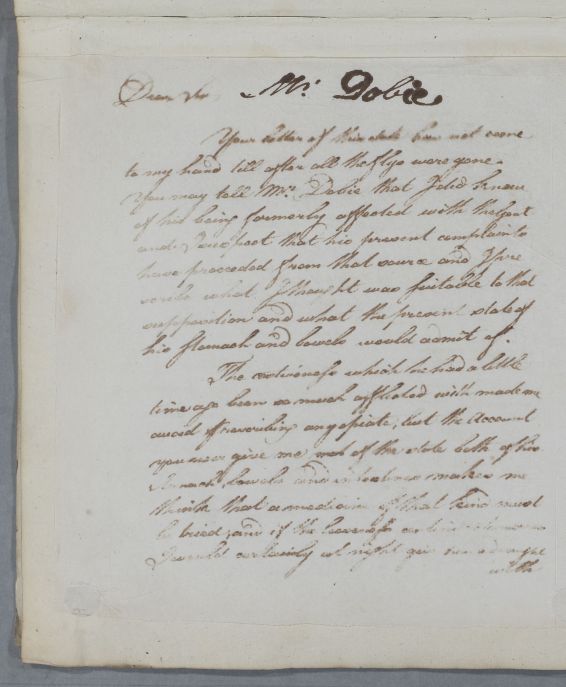 Dear Sir Mr. Dobie
Your letter of this date has not come
to my hand till after all the flys were gone.
You may tell Mr. Dobie that I did know
of his being formerly affected with the Gout
and I suspect that his present complaints
have proceeded from that source and I pre
scrib'd what I thought was suitable to that
supposition and what the present state of
his stomach and bowels would admit of.
The costiveness which he had a little
time ago been so much afflicted with made me
averse to prescribing an opiate, but the Account
you now give me of the state both of his
stomach bowels and makes me
think that a medicine of that kind must
be tried, and if the
I would certainly at night give him a draught
with